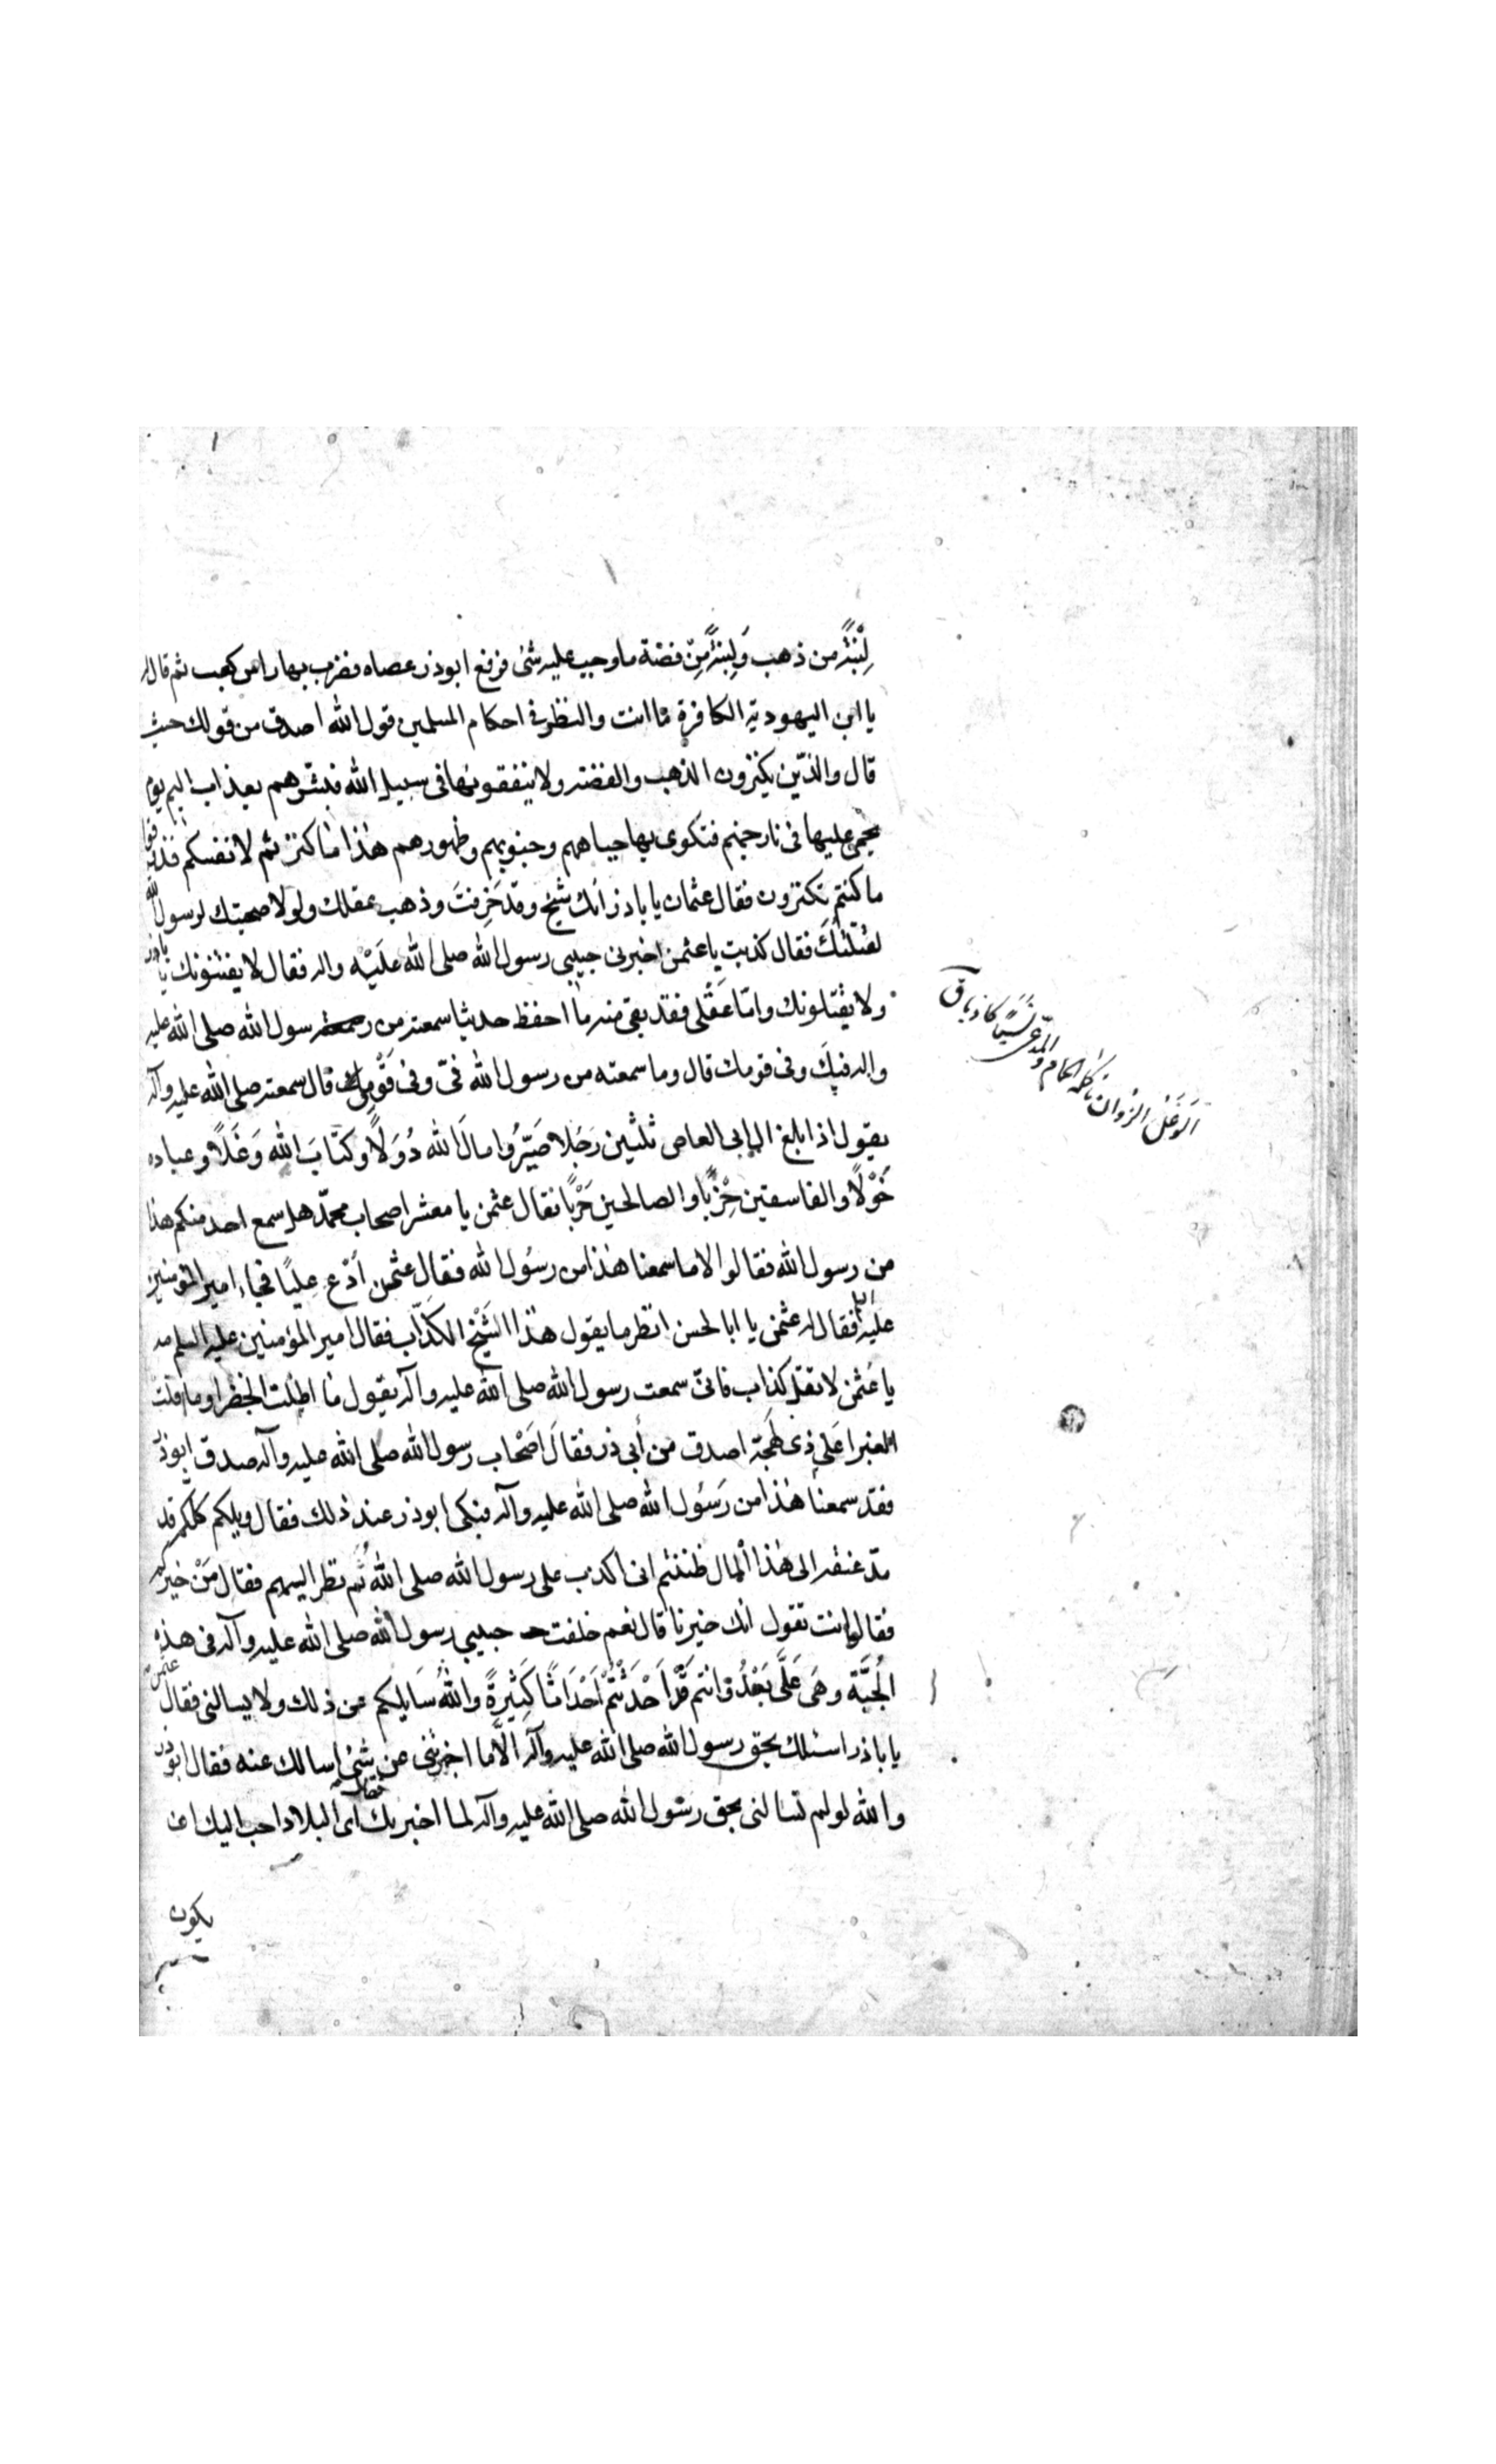 لِبْنَةً من ذهب وَلِبْنَةً مِنْ فضة ما وجب عليه شئ فرفع ابوذر عصاه فضرب بها راس كعب ثم قال له
يا ابن اليهودية الكافرة ما انت والنظر في احكام المسلمين قول الله اصدق من قولك حيث
قال والذين يكنزون الذهب والفضة ولا ينفقونها فى سبيل الله فبشرهم بعذاب اليم يوم
يحمى عليها فى نار جهنم فتكوى بها جباههم وجنوبهم وظهورهم هٰذا ما كنزتم لانفسكم فذوقوا
ما كنتم تكنزون فقال عثمان يا باذر انك شيخ وقد خَرِفتَ وذهب عقلك ولولا صحبتك لرسول الله
لقتلتُكَ فقال كذبت يا عثمن اخبرنى حبيبي رسول الله صلى الله عَلَيْه واله فقال لا يفتنونك يا باذر
ولا يقتلونك وامّا عَقْلى فقد بقى منه ما احفظ حديثا سمعته من رسول الله صلى الله عليه
واله فيكَ وفى قومك قال وما سمعته من رسول الله فىّ وفى قَوْمى قال سمعته صلى الله عليه وآله
يقول اذا بلغ ال ابى العاص ثلثين رَجُلا صَيَّرُوا مالَ الله دُوَلًا وكتابَ الله وَغَلًا وعباده
خَوْلًا والفاسقين حِزْبًا والصالحين حَرْبًا فقال عثمن يا معشر اصحاب محمّد هل سمع احد منكم هذا
من رسول الله فقالوا لا ما سمعنا هٰذا من رسُول الله فقال عثمن اُدْع عليًا فجاء امير المؤمنين
عليه السلم فقال له عثمن يا ابا الحسن انظر ما يقول هٰذا الشَيْخ الكذّاب فقال امير المؤمنين عليه السلم مه
يا عُثمن لا تقل كذاب فانى سمعت رسول الله صلى الله عليه وآله يقول ما اظلت الخضرا وما اقلت
الغبرا عَلى ذى لهجة اصدق من أبي ذر فقالَ اصْحاب رسول الله صلى الله عليه وآله صدق ابوذر
فقد سمعنا هٰذا من رَسُول الله صلى الله عليه وآله فبكى ابوذر عند ذلك فقال ويلكم كلكم قد
قد عنقه الى هٰذا المال ظننتم انى اكذب على رسول الله صلى الله ثُم نظر اليهم فقال مَنْ خيركم
فقالوا انت تقول انك خيرنا قال نعم خلفت حبيبي رسول الله صلى الله عليه وآله فى هذه
الجُبَّة وهىَ عَلَىَّ بَعْدُ وانتم قَدْ اَحْدَثْتُمْ اَحْدَاثًا كَثِيرةً واللهُ سَايلكم عن ذلك ولا يسالنى فقال عثمن
يا باذر اسئلك بحق رسول الله صلى الله عليه وآله الّا ما اخبرتنى عن شئ اسالك عنه فقال ابوذر
والله لو لم تسالنى بحق رسول الله صلى الله عليه وآله لما اخبرتك فقال اى البلاد احب اليك ان
يكون
الوَغَل الزُوان ياكله الحمام والمدّعى نَسَبًا كاذبا ق